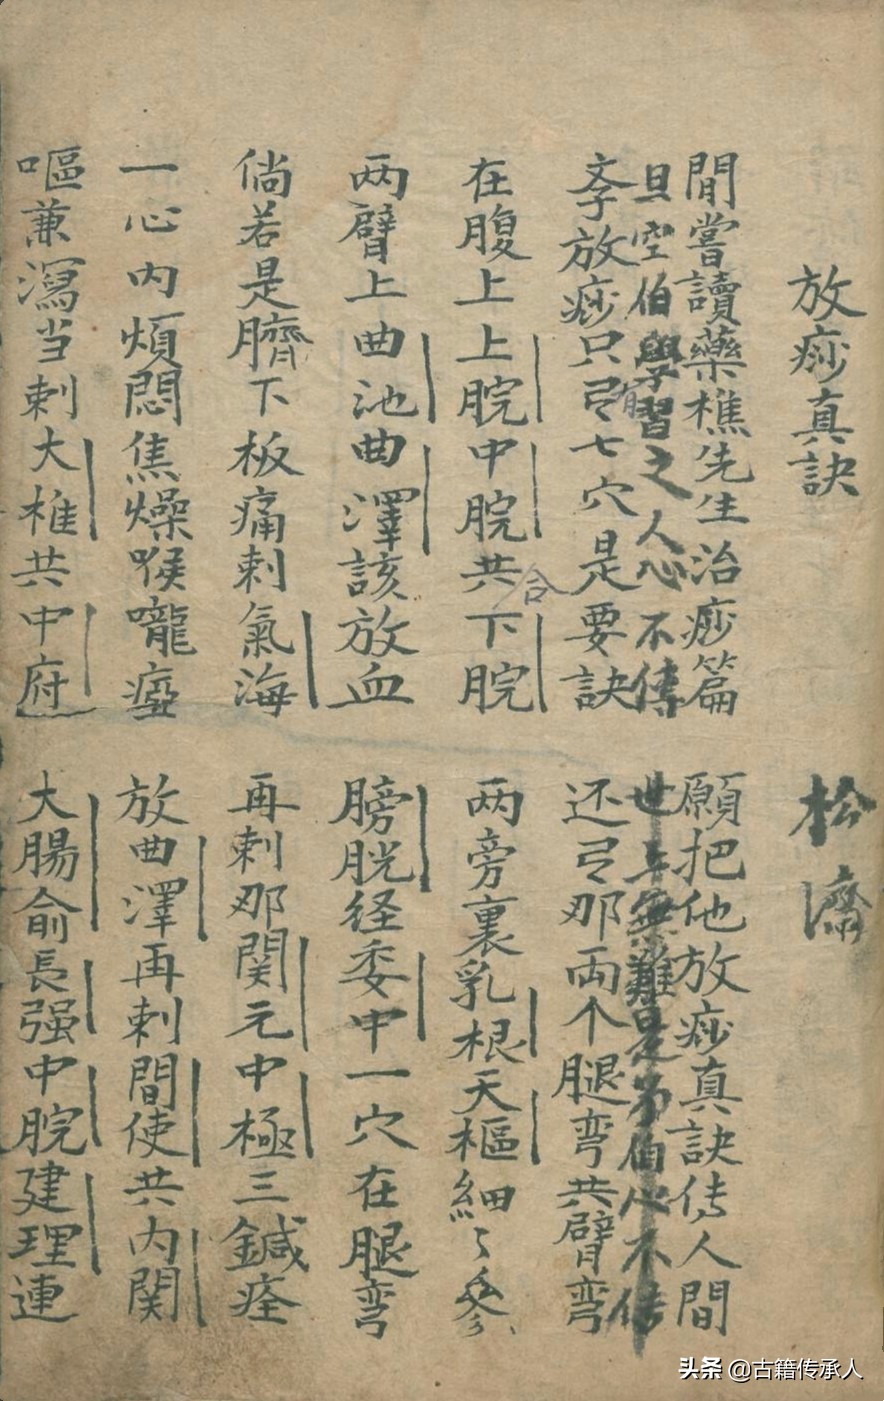 放痧真訣 松濤
閒嘗讀藥樵先生治痧篇 願把他放痧真訣傳人間
旦空伯學習之人心不傳 世上無難是弟伯心不傳
孝放痧只弓七穴是要訣 还弓那兩个腿弯共臂弯
有
在腹上上脘中脘共下脘 两旁裏乳根天樞細々参
合
两臂上曲池曲澤該放血 膀胱经委中一穴在腿弯
倘若是臍下板痛刺氣海 再刺那関元中極三鍼痊
一心内煩悶焦燥喉嚨瘂 放曲澤再刺間使共内関
嘔兼瀉当刺大椎共中府 大腸俞長强中脘建理連
头条 @古籍传承人